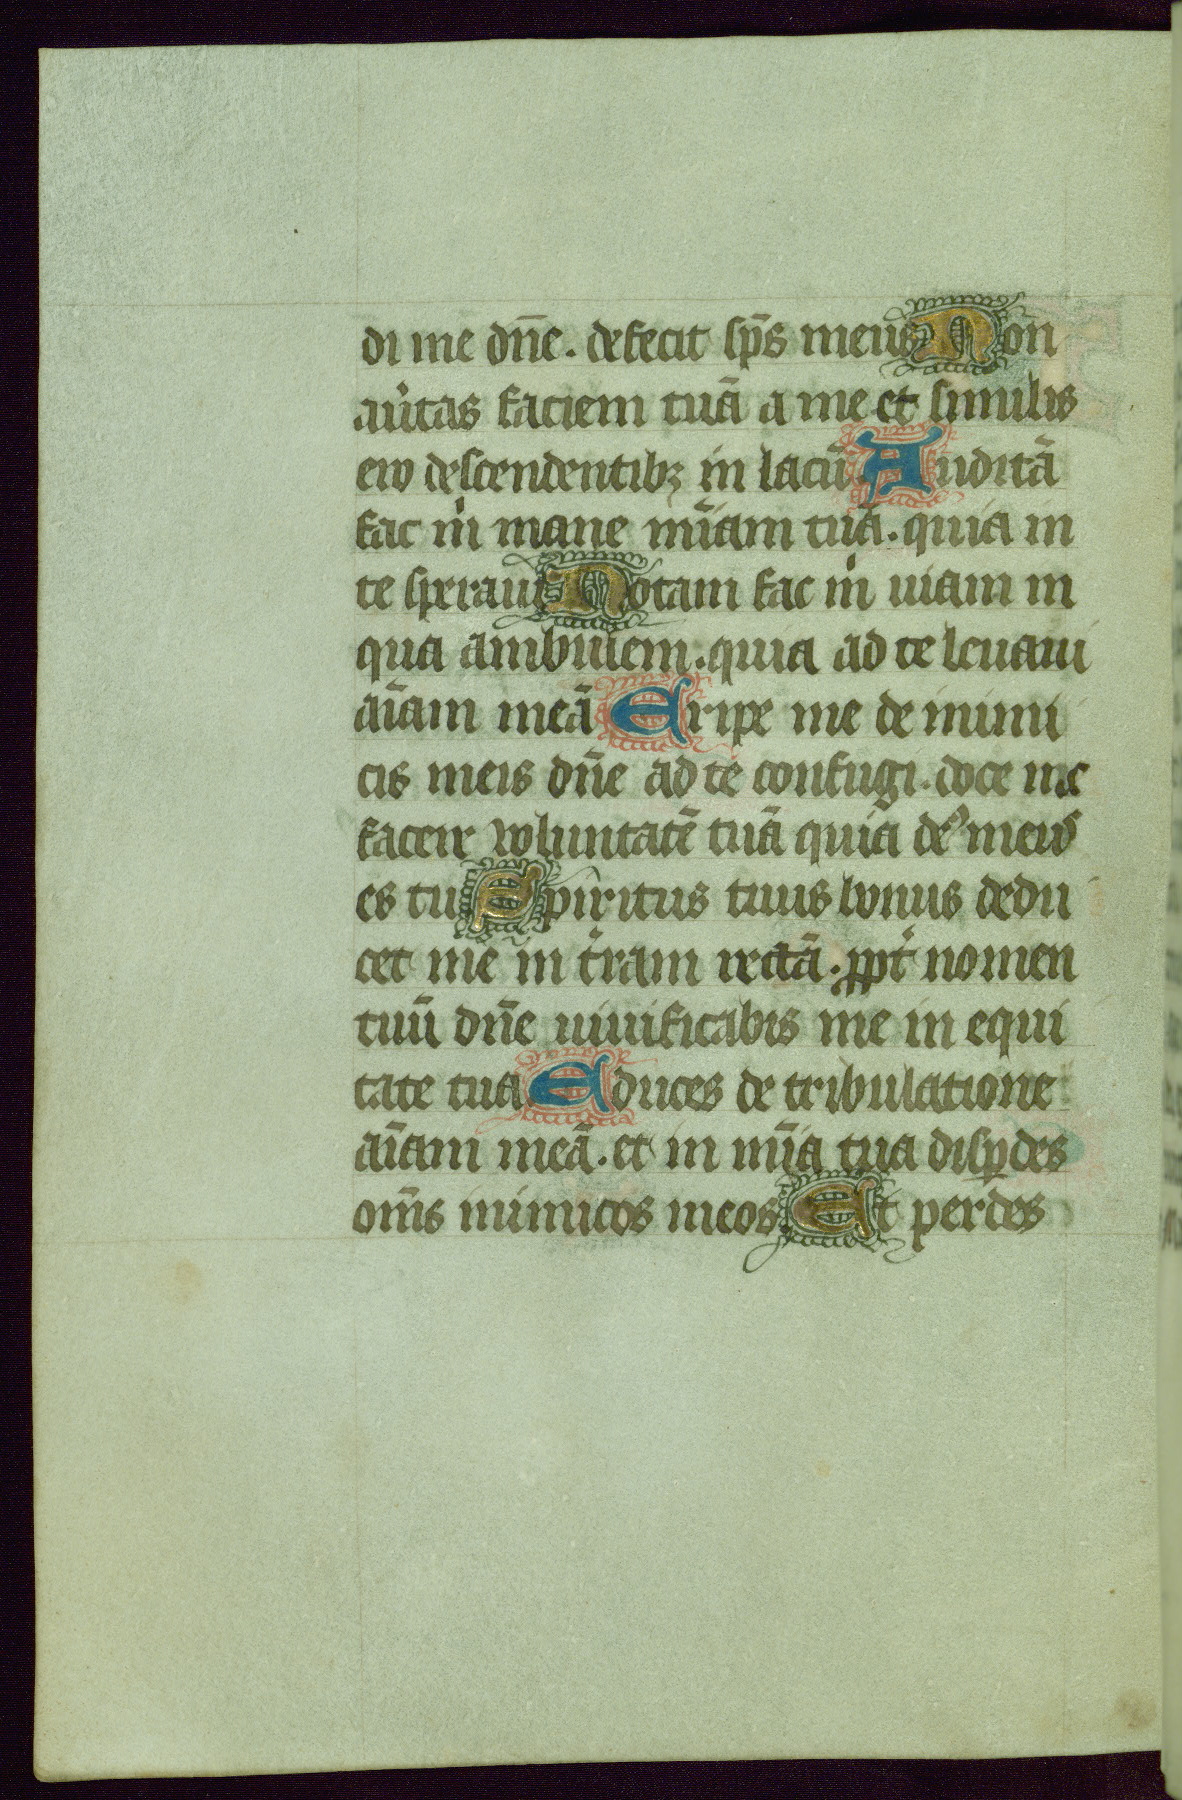 di me dn̄e. defecit sp̄s meus Non
au̓tas faciem tuā a me et similis
ero descendentibꝫ in lacū. Auditā
fac m̓ mane mīam tuā. quia in
te speraui Notam fac m̓ uiam in
qua ambulem. quia ad te leuaui
aīam meā Eripe me de inimi
cis meis dn̄e ad te confugi. doce me
facere voluntatē tuā quia deꝰ meus
es tu Spiritus tuus bonus dedu
cet me in t̓ram rectā. ꝓpt̓ nomen
tuū dn̄e uiuificabis me in equi
tate tua Educes de tribulatione
aīam meā. et in mīa tua disꝑdes
om̄s inimicos meos. Et perdes